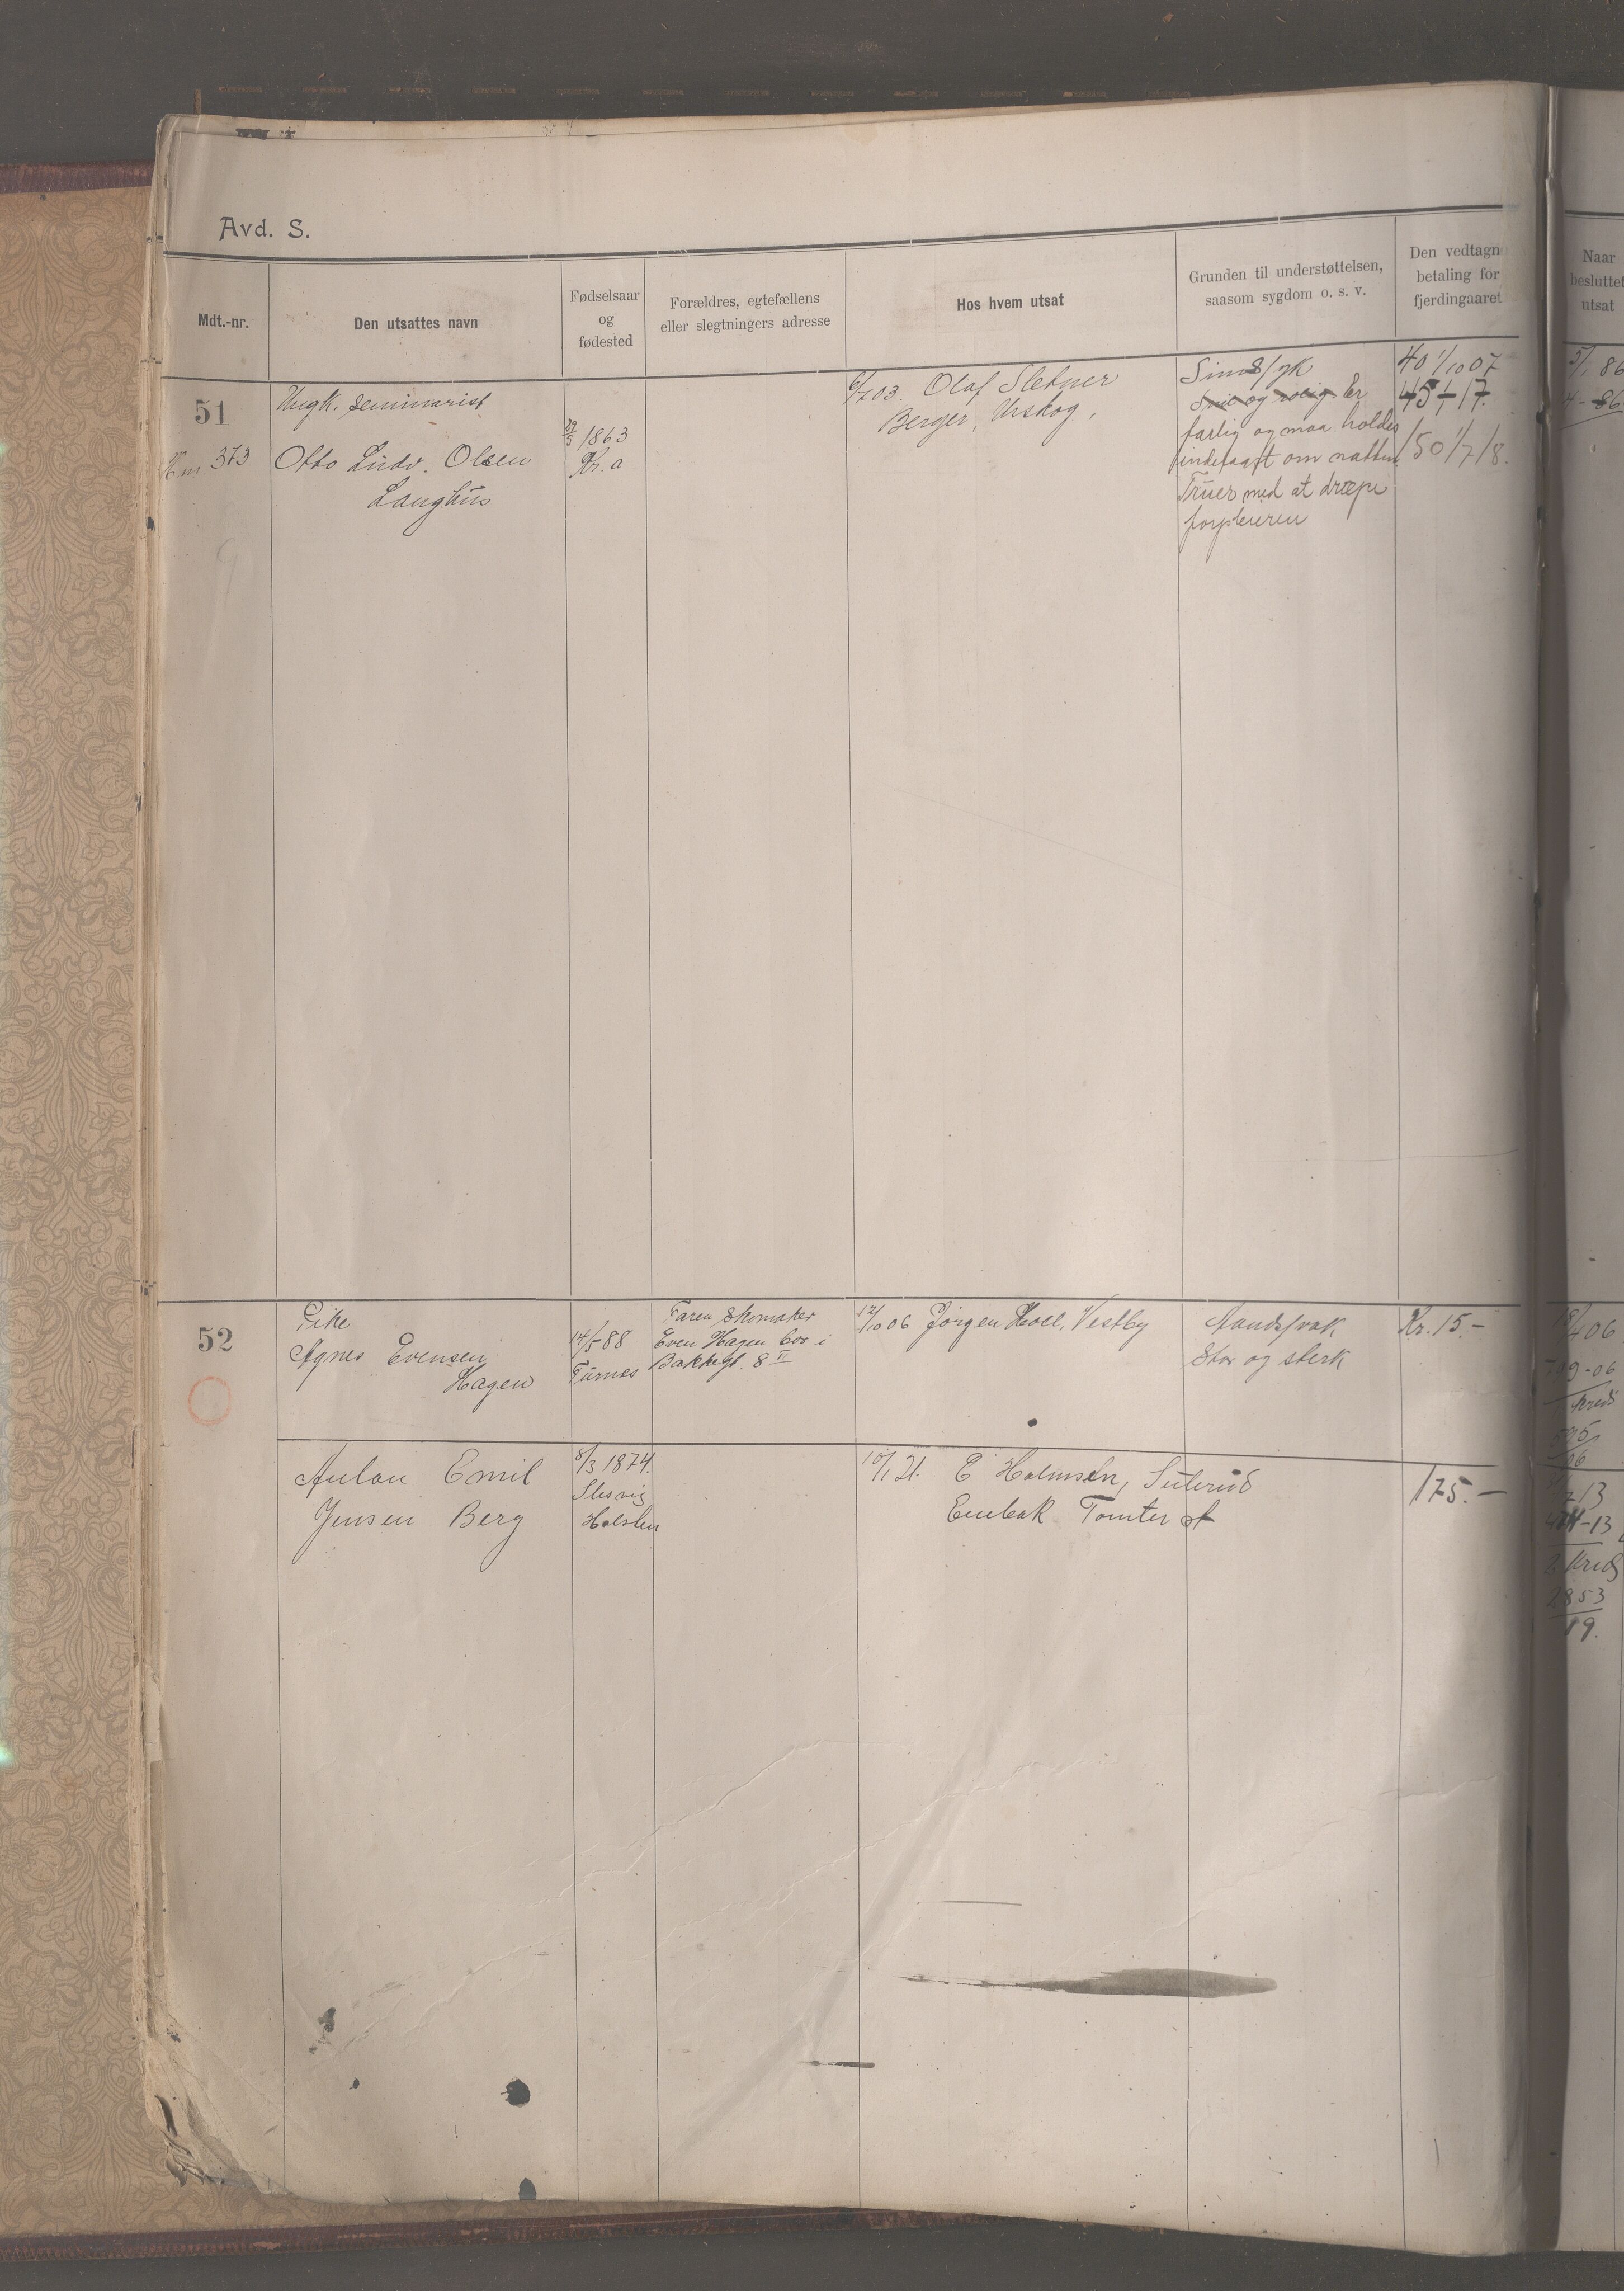 Avd. S.
Mdt.-nr.
Den utsattes navn
Fødselsaar
og
fødested
Forældres, egtefællens
eller slegtningers adresse
Hos hvem utsat
Grunden til understøttelsen,
saasom sygdom o. s. v.
Den vedtagne
betaling for
fjerdingaaret
Naar
besluttet
utsat
51
373
Ungk. seminarist
Otto Ludv. Olsen
Langhus
1863
Kr.a
6/7 03. Olaf Sletner
Berger, Urskog.
Sindssyk
Snil og rolig. Er
farlig og maa holdes
indelaast om natten
Truer med at dræpe
forpleieren
40 1/10 07
45 17.
150 1/7 18.
5/1 86
52
Pike
Agnes Evensen
Hagen
14/5-88
Furnes
Faren, Skomaker
Even Hagen bor i
Bakkegt. 8 II
12/10 06 Jørgen Hoel, Vestby
Aandssvak
Stor og sterk
Kr. 15.-
18/4 06
Anton Emil
Jensen Berg
8/3 1874.
Slesvig
Holsten
10/1 21. E Holmsen, Suterud
Enebak Tomter st
175.-